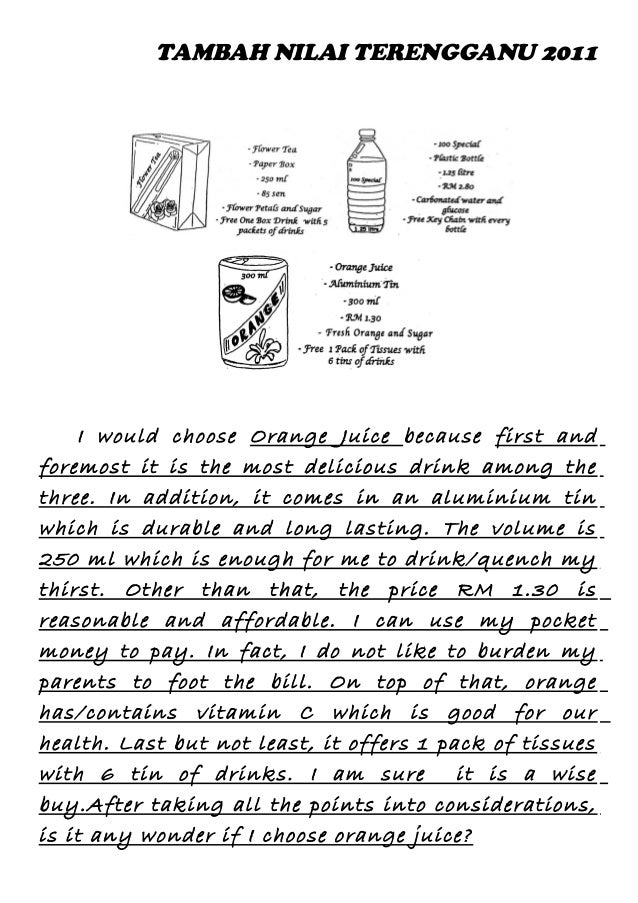 TAMBAH NILAI TERENGGANU 2011
Flower Tea
- Flower Tea
- Paper Box
- 250 ml
- 85 sen
- Flower Petals and Sugar
- Free One Box Drink with 5
packets of drinks
100 Special
1.25 litre
- 100 Special
- Plastic Bottle
- 1.25 litre
- RM 2.80
- Carbonated water and
glucose
- Free Key Chain with every
bottle
300 ml
ORANGE
- Orange Juice
- Aluminium Tin
- 300 ml
- RM 1.30
- Fresh Orange and Sugar
- Free 1 Pack of Tissues with
6 tins of drinks
I would choose Orange Juice because first and
foremost it is the most delicious drink among the
three. In addition, it comes in an aluminium tin
which is durable and long lasting. The volume is
250 ml which is enough for me to drink/quench my
thirst. Other than that, the price RM 1.30 is
reasonable and affordable. I can use my pocket
money to pay. In fact, I do not like to burden my
parents to foot the bill. On top of that, orange
has/contains vitamin C which is good for our
health. Last but not least, it offers 1 pack of tissues
with 6 tin of drinks. I am sure it is a wise
buy.After taking all the points into considerations,
is it any wonder if I choose orange juice?